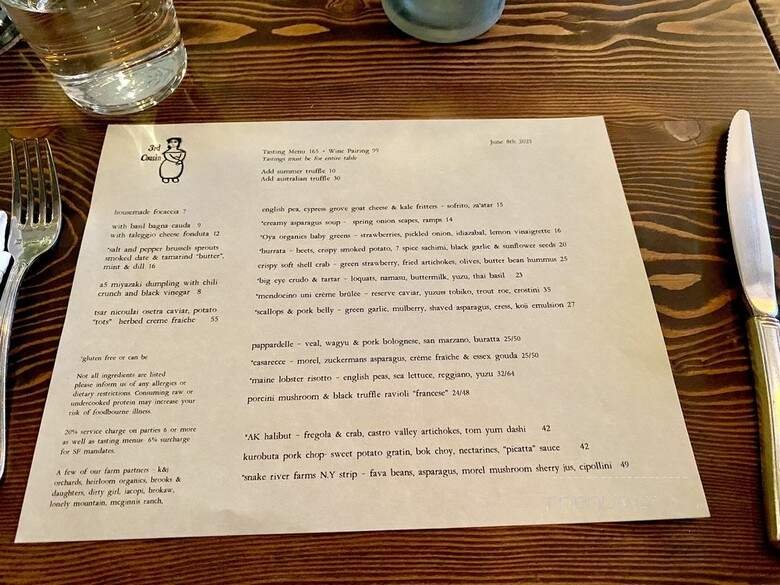 3rd
Cousin
Tasting Menu 165 - Wine Pairing 99
Tastings must be for entire table
Add summer truffle 10
Add australian truffle 30
June 8th 2023
housemade focaccia 7
with basil bagna cauda 9
with taleggio cheese fonduta 12
*salt and pepper brussels sprouts
smoked date & tamarind "butter",
mint & dill 16
a5 miyazaki dumpling with chili
crunch and black vinegar 8
tsar nicoulai osetra caviar, potato
"tots" herbed creme fraiche 55
*gluten free or can be
Not all ingredients are listed
please inform us of any allergies or
dietary restrictions. Consuming raw or
undercooked protein may increase your
risk of foodbourne illness.
20% service charge on parties 6 or more
as well as tasting menus 6% surcharge
for SF mandates.
A few of our farm partners - k&j
orchards, heirloom organics, brooks &
daughters, dirty girl, iacopi, brokaw,
lonely mountain, mcginnis ranch,
english pea, cypress grove goat cheese & kale fritters - sofrito, za'atar 15
*creamy asparagus soup - spring onion scapes, ramps 14
*Oya organics baby greens - strawberries, pickled onion, idiazabal, lemon vinaigrette 16
*burrata - beets, crispy smoked potato, 7 spice sachimi, black garlic & sunflower seeds 20
crispy soft shell crab - green strawberry, fried artichokes, olives, butter bean hummus 25
*big eye crudo & tartar - loquats, namasu, buttermilk, yuzu, thai basil 23
*mendocino uni crème brûlee - reserve caviar, yuzu tobiko, trout roe, crostini 35
*scallops & pork belly - green garlic, mulberry, shaved asparagus, cress, koji emulsion 27
pappardelle - veal, wagyu & pork bolognese, san marzano, buratta 25/50
*casarecce - morel, zuckermans asparagus, crème fraiche & essex gouda 25/50
*maine lobster risotto - english peas, sea lettuce, reggiano, yuzu 32/64
porcini mushroom & black truffle ravioli "francese" 24/48
*AK halibut - fregola & crab, castro valley artichokes, tom yum dashi 42
kurobuta pork chop- sweet potato gratin, bok choy, nectarines, "picatta" sauce 42
*snake river farms N.Y strip - fava beans, asparagus, morel mushroom sherry jus, cipollini 49